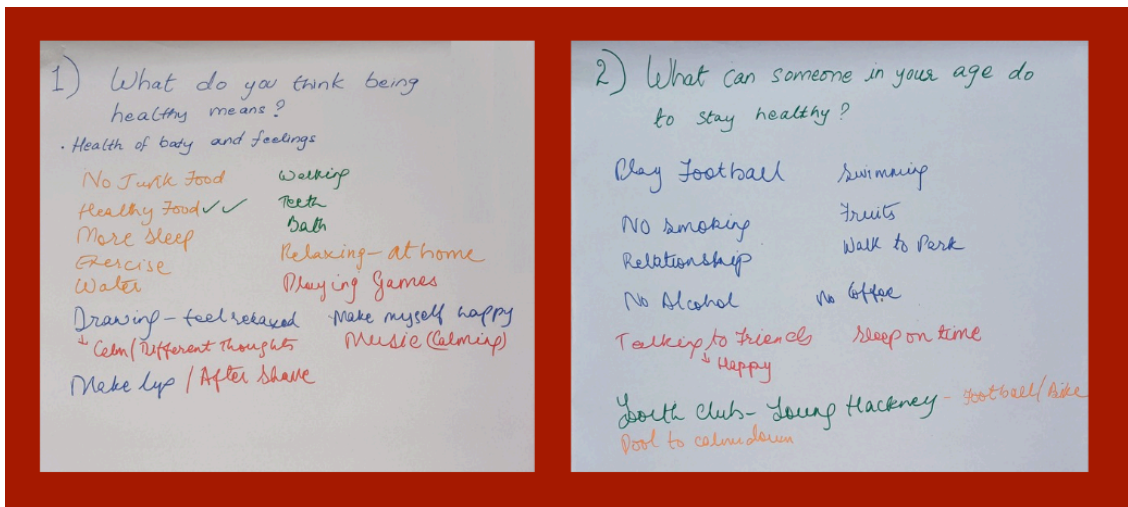 1) What do you think being
healthy means?
· Health of baty and feelings
No Junk Food
Healthy Food ✓✓
More sleep
Exercise
Water
Walking
Teeth
Bath
Relaxing - at home
Playing Games
Drawing - feel relaxed
↳ Calm / Different Thoughts
Make myself happy
Music (Calming)
Make Up / After Shave
2) What can someone in your age do
to stay healthy?
Play Football
Swimming
No smoking
Fruits
Relationship
Walk to Park
No Alcohol
No Coffee
Talking to Friends
↳ Happy
Sleep on time
Youth Club - Young Hackney - Football / Bike
Pool to calm down